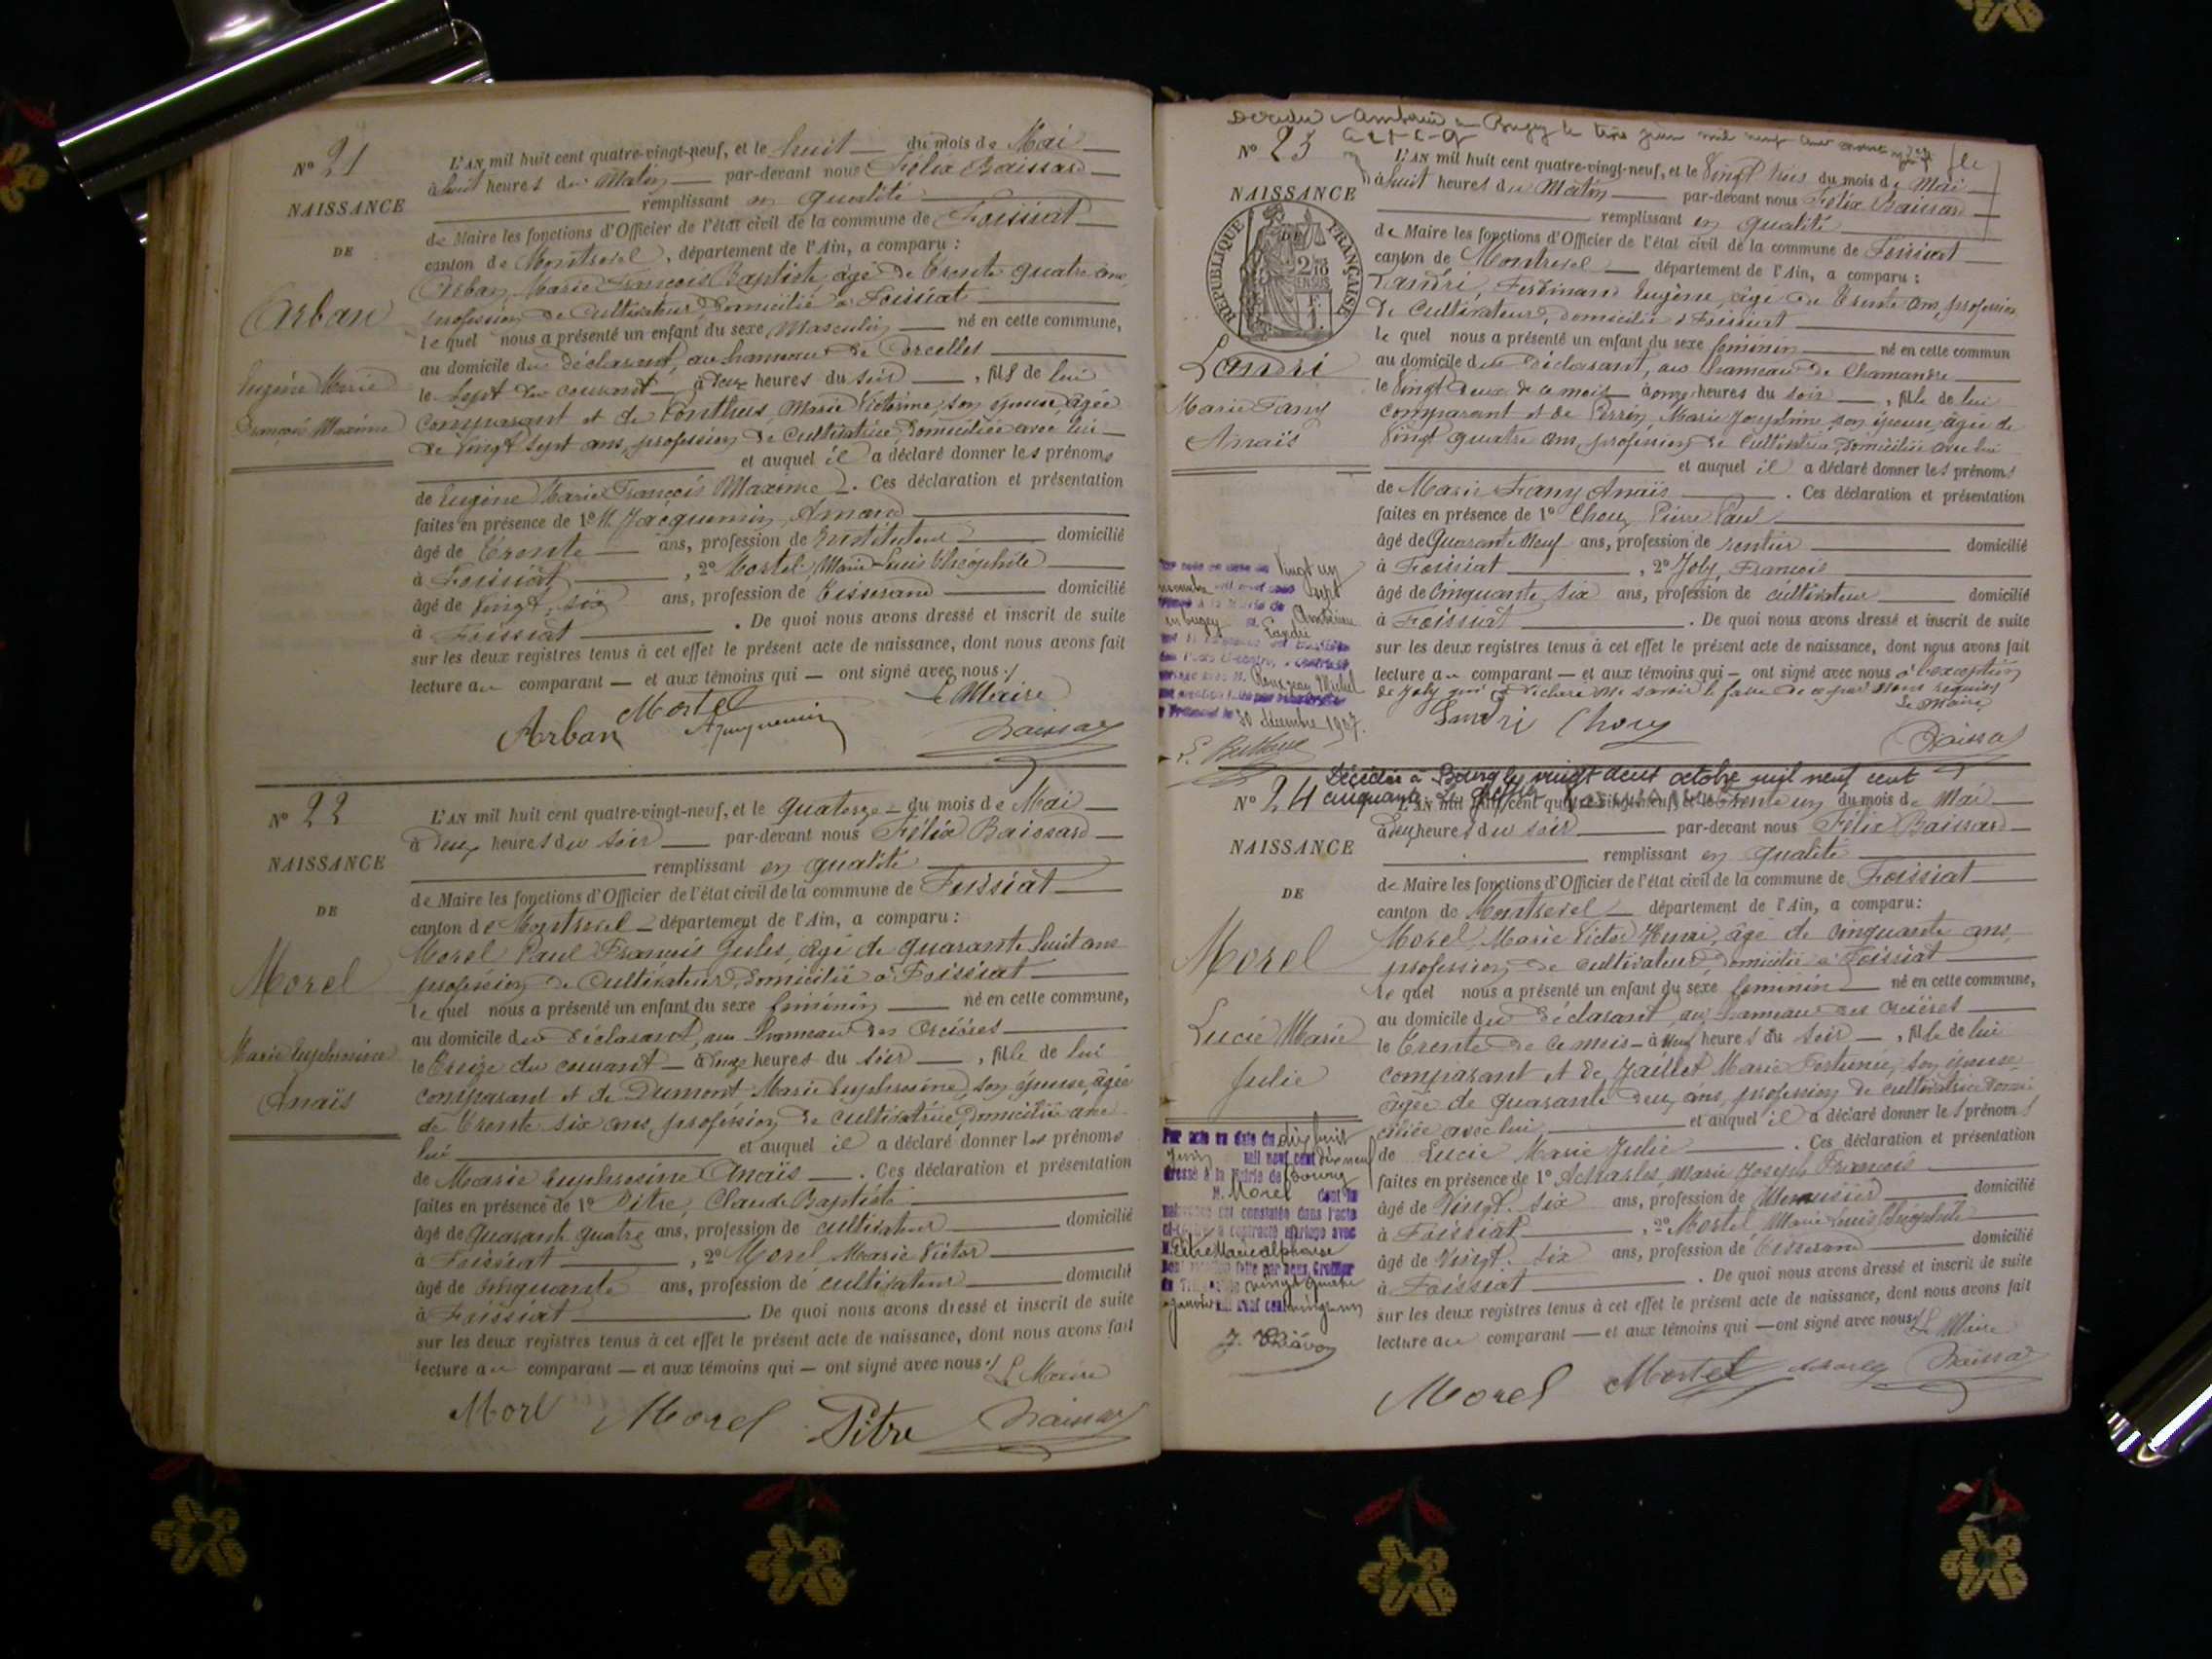 Nº 21
NAISSANCE
DE
Arban
Eugène Marie
François Maxime
L'AN mil huit cent quatre-vingt-neuf, et le huit du mois de Mai
à huit heures du Matin par-devant nous Félix Baissard
remplissant en qualité
de Maire les fonctions d'Officier de l'état civil de la commune de Foissiat
canton de Montrevel, département de l'Ain, a comparu :
Arban, Marie François Baptiste, âgé de trente quatre ans,
profession de Cultivateur, domicilié à Foissiat
lequel nous a présenté un enfant du sexe Masculin né en cette commune,
au domicile du déclarant, au hameau de Corcelles
le Sept du courant à deux heures du soir, fils de lui
comparant et de Ponthus, Marie Victorine, son épouse, âgée
de Vingt Sept ans, profession de Cultivatrice, domiciliée avec lui
et auquel il a déclaré donner les prénoms
de Eugène Marie François Maxime. Ces déclaration et présentation
faites en présence de 1º M. Jacquemin, Amand
âgé de trente ans, profession de Instituteur domicilié
à Foissiat, 2º Mortel, Marie Louis Théophile
âgé de Vingt six ans, profession de Tisserand domicilié
à Foissiat. De quoi nous avons dressé et inscrit de suite
sur les deux registres tenus à cet effet le présent acte de naissance, dont nous avons fait
lecture au comparant — et aux témoins qui — ont signé avec nous ./
Le Maire
Arban Mortel AJacquemin Baissard
Nº 22
NAISSANCE
DE
Morel
Marie Euphrosine
Anaïs
L'AN mil huit cent quatre-vingt-neuf, et le quatorze du mois de Mai
à deux heures du soir par-devant nous Félix Baissard
remplissant en qualité
de Maire les fonctions d'Officier de l'état civil de la commune de Foissiat
canton de Montrevel département de l'Ain, a comparu :
Morel Paul François Jules, âgé de quarante huit ans
profession de Cultivateur, domicilié à Foissiat
lequel nous a présenté un enfant du sexe féminin né en cette commune,
au domicile du déclarant, au hameau des Orcières
le treize du courant à onze heures du soir, fille de lui
comparant et de Dumont Marie Euphrosine, son épouse, âgée
de trente six ans, profession de cultivatrice, domiciliée avec
lui et auquel il a déclaré donner les prénoms
de Marie Euphrosine Anaïs. Ces déclaration et présentation
faites en présence de 1º Pitre, Claude Baptiste
âgé de quarante quatre ans, profession de cultivateur domicilié
à Foissiat, 2º Morel Marie Victor
âgé de cinquante ans, profession de cultivateur domicilié
à Foissiat. De quoi nous avons dressé et inscrit de suite
sur les deux registres tenus à cet effet le présent acte de naissance, dont nous avons fait
lecture au comparant — et aux témoins qui — ont signé avec nous ./
Le Maire
Morel Morel Pitre Baissard
Décédée à Ambérieu en Bugey le treize juin mil neuf cent
Nº 23
NAISSANCE
DE
RÉPUBLIQUE FRANÇAISE
Landri
Marie Fany
Anaïs
L'AN mil huit cent quatre-vingt-neuf, et le Vingt trois du mois de Mai
à huit heures du Matin par-devant nous Félix Baissard
remplissant en qualité
de Maire les fonctions d'Officier de l'état civil de la commune de Foissiat
canton de Montrevel département de l'Ain, a comparu :
Landri, Ferdinand Eugène, âgé de trente ans, profession
de Cultivateur, domicilié à Foissiat
lequel nous a présenté un enfant du sexe féminin né en cette commun
au domicile du déclarant, au hameau de Chamandre
le Vingt deux de ce mois à onze heures du soir, fille de lui
comparant et de Perrin, Marie Joséphine, son épouse, âgée de
Vingt quatre ans, profession de Cultivatrice, domiciliée avec lui
et auquel il a déclaré donner les prénoms
de Marie Fany Anaïs. Ces déclaration et présentation
faites en présence de 1º Choux Pierre Paul
âgé de Quarante Neuf ans, profession de rentier domicilié
à Foissiat, 2º Joly, François
âgé de Cinquante Six ans, profession de cultivateur domicilié
à Foissiat. De quoi nous avons dressé et inscrit de suite
sur les deux registres tenus à cet effet le présent acte de naissance, dont nous avons fait
lecture au comparant — et aux témoins qui — ont signé avec nous à l'exception
de Joly qui a déclaré ne savoir le faire de ce par Nous requis
Le Maire
Landri Choux Baissard
Vingt un
novembre mil neuf cent sept
Ambérieu
en bugey
Landri
Rongean Michel
30 décembre 1907.
Décédée à Bourg le vingt deux octobre mil neuf cent
cinquante
Nº 24
NAISSANCE
DE
Morel
Lucie Marie
Julie
L'AN mil huit cent quatre-vingt-neuf, et le trente un du mois de Mai
à deux heures du soir par-devant nous Félix Baissard
remplissant en qualité
de Maire les fonctions d'Officier de l'état civil de la commune de Foissiat
canton de Montrevel département de l'Ain, a comparu :
Morel Marie Victor Henri, âgé de cinquante ans,
profession de cultivateur, domicilié à Foissiat
lequel nous a présenté un enfant du sexe féminin né en cette commune,
au domicile du déclarant, au hameau des Orcières
le trente de ce mois à neuf heures du soir, fille de lui
comparant et de Jaillet Marie Fortunée, son épouse
âgée de quarante deux ans, profession de cultivatrice domi
ciliée avec lui, et auquel il a déclaré donner les prénoms
de Lucie Marie Julie. Ces déclaration et présentation
faites en présence de 1º Acharles, Marie Joseph François
âgé de Vingt six ans, profession de Menuisier domicilié
à Foissiat, 2º Mortel Marie Louis Théophile
âgé de Vingt six ans, profession de Tisserand domicilié
à Foissiat. De quoi nous avons dressé et inscrit de suite
sur les deux registres tenus à cet effet le présent acte de naissance, dont nous avons fait
lecture au comparant — et aux témoins qui — ont signé avec nous ./
Le Maire
Morel Mortel Baissard
Par acte en date du dix huit
juin mil neuf cent dix neuf
dressé à la Mairie de Bourg
M. Morel dont la
naissance est constatée dans l'acte
ci-contre a contracté mariage avec
M. Pitre Marie Alphonse
faite par nous, Greffier
du Tribunal le vingt quatre
janvier mil neuf cent vingt un